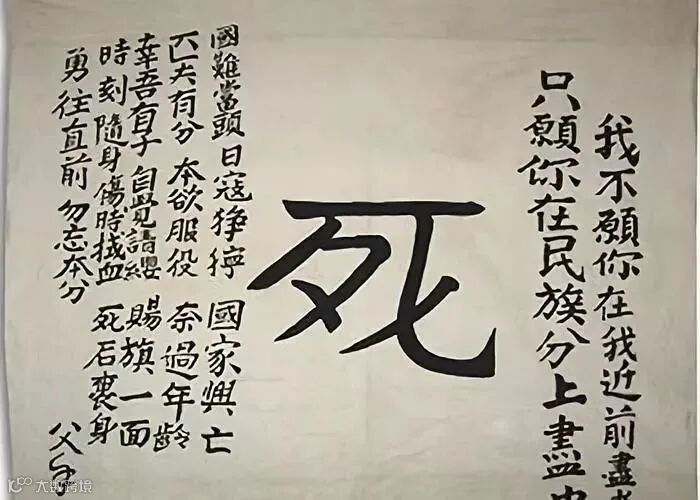 我不願你在我近前盡
只願你在民族分上盡
死
國難當頭 日寇猙獰 國家興亡
匹夫有分 本欲服役 奈過年齡
幸吾有子 自覺請纓 賜旗一面
時刻隨身 傷時拭血 死后裹身
勇往直前 勿忘本分
父
大数跨境